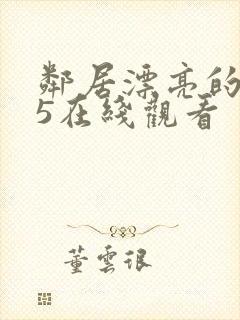 鄰居漂亮的
5在綫觀看
董雲狠